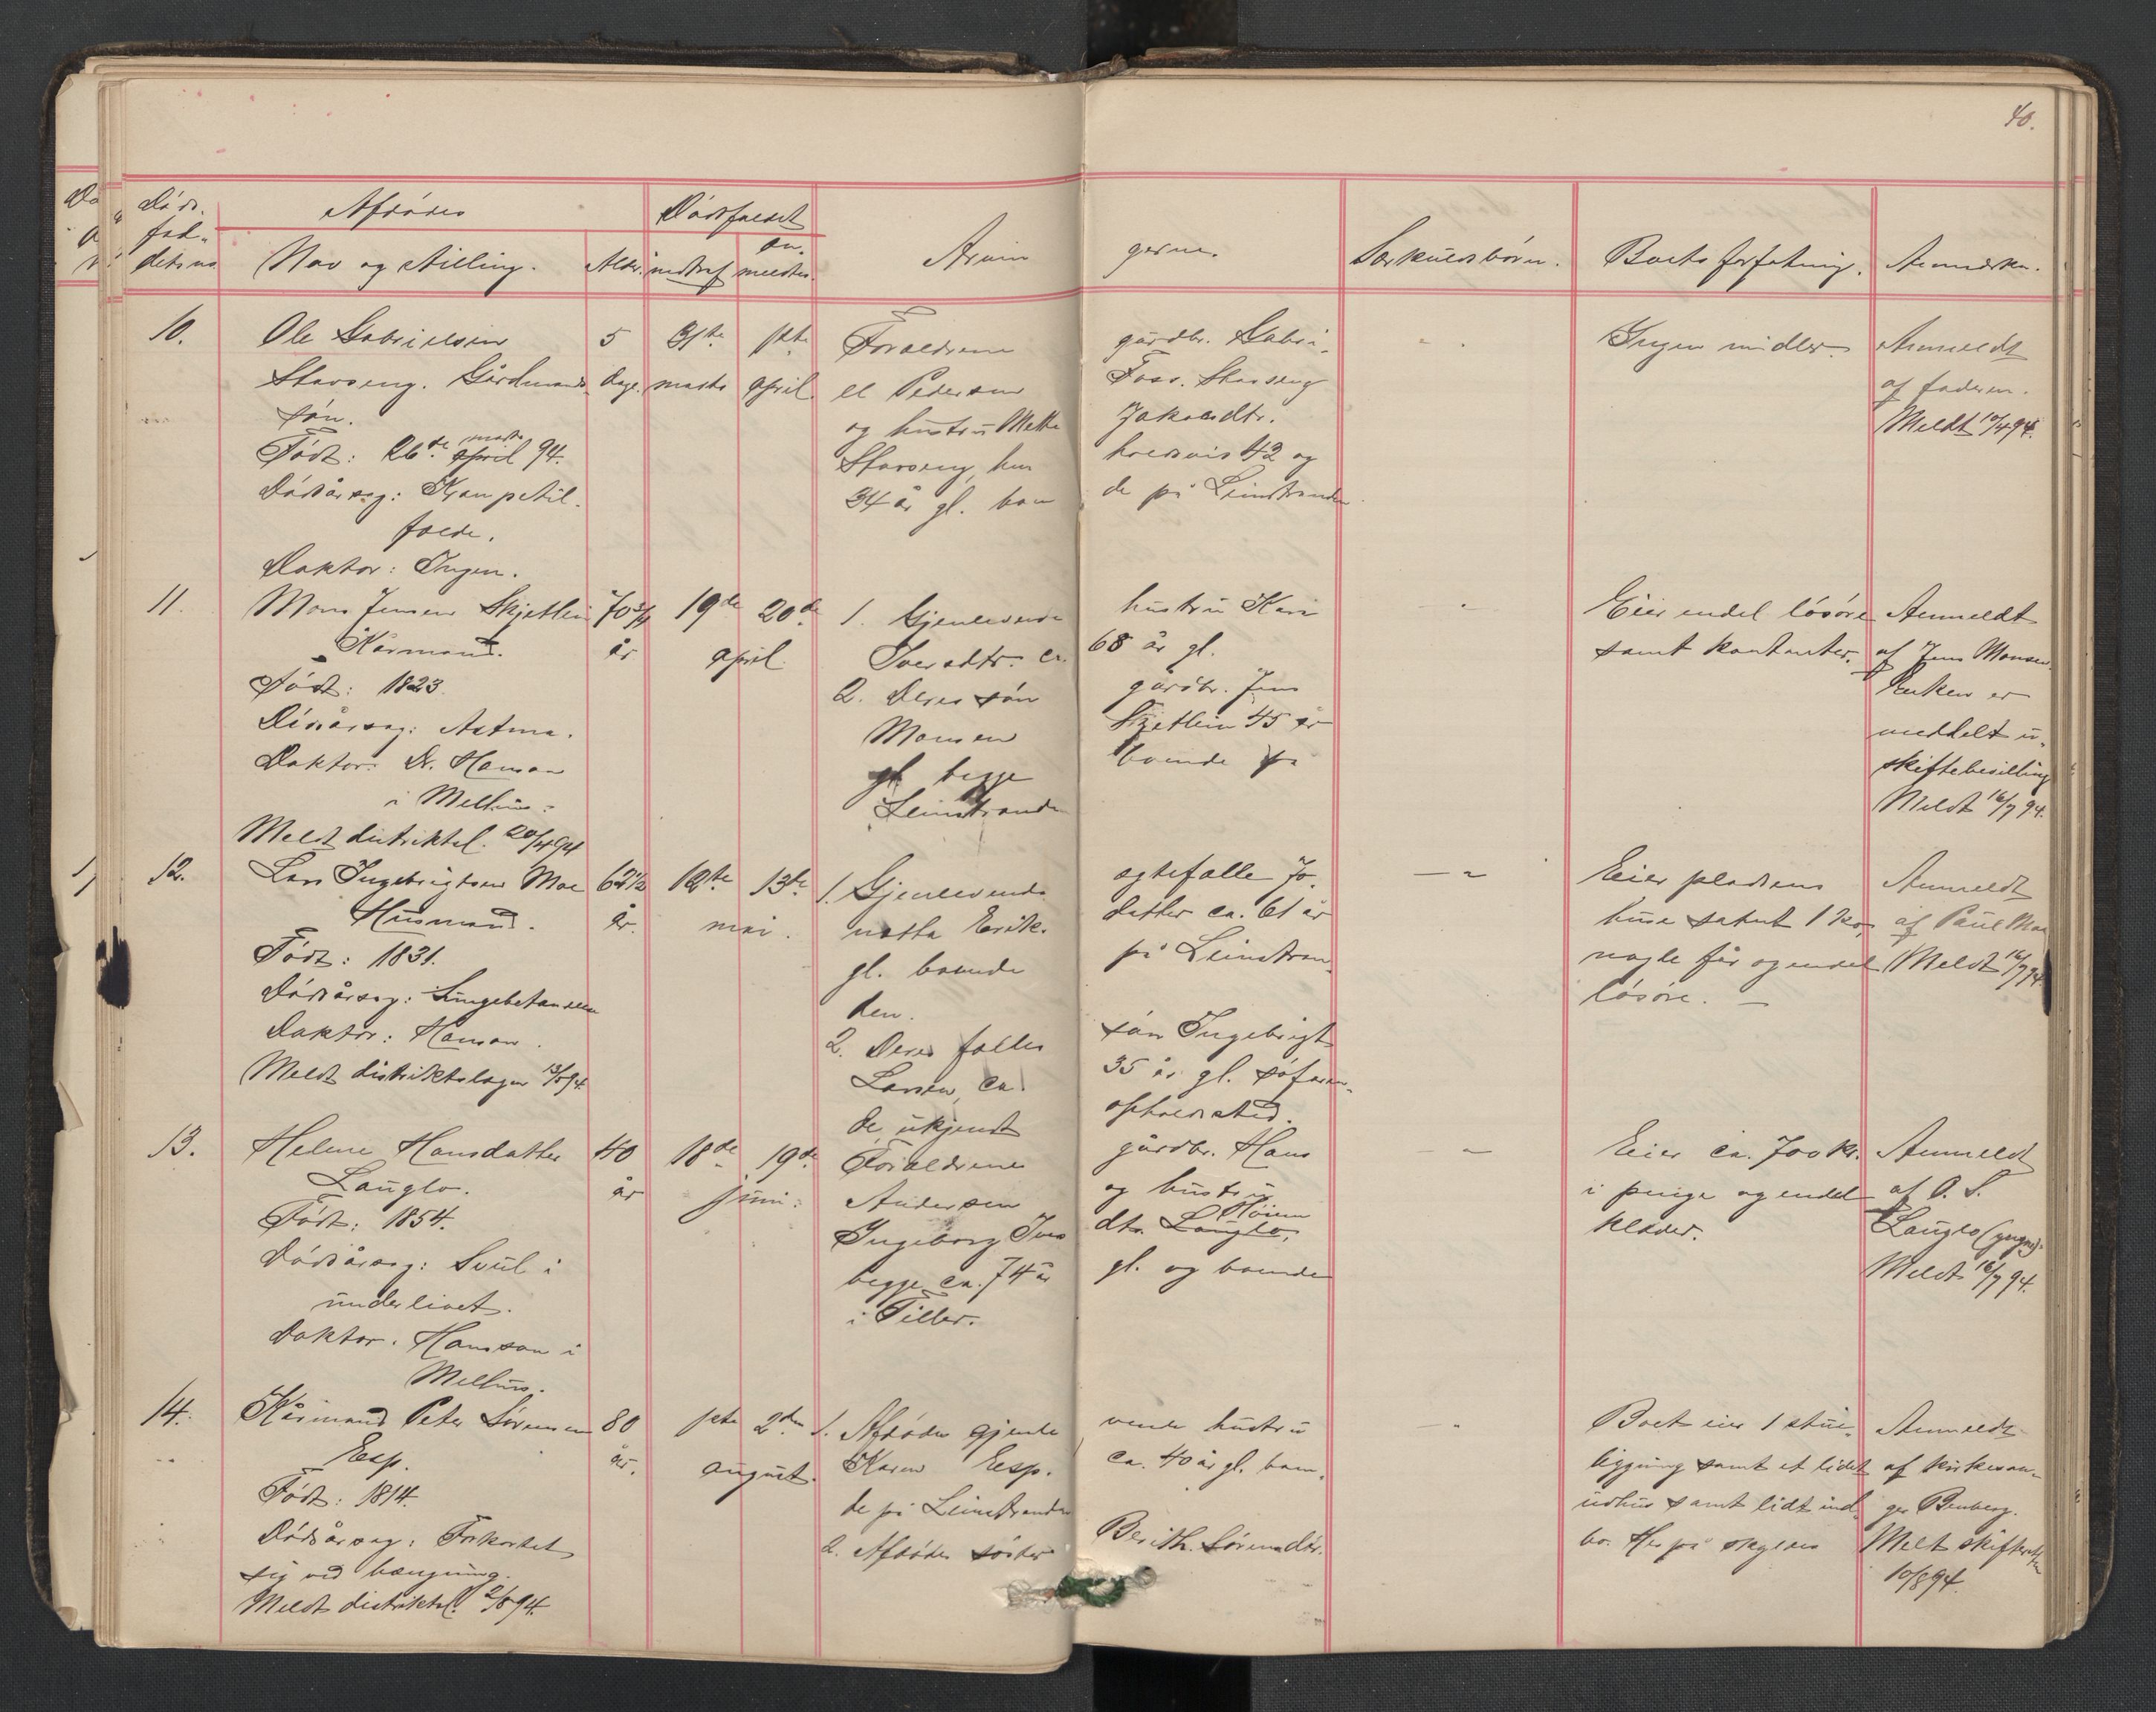 40.
Døds-
fal-
dets no
Afdødes
Navn og stilling.
Alder.
Dødsfaldet
indtraf
an-
meldtes.
Arvin
gerne.
Særkuldsbørn.
Boets forfatning.
Anmærkn.
10.
Ole Gabrielsen
Stavseng. Gårdmands
søn.
Født: 26de marts april 94.
Dødsårsag: Krampetil-
fælde.
Doktor: Ingen.
5
dage.
31te
marts
1ste
april.
Forældrene gårdbr. Gabri-
el Pedersen Foss. Stavseng
og hustru Mette Jakobsdtr.
Stavseng, henholdsvis 42 og
34 år gl. boende på Leinstranden.
Ingen midler.
Anmeldt
af faderen.
Meldt 10/4 94.
11.
Mons Jensen Skjetlein
Kårmand.
Født: 1823.
Dødsårsag: Astma.
Doktor: Dr. Hanson
i Melhus.
Meldt distriktsl. 20/4 94
70 3/4
år
19de 20de
april.
1. Gjenlevende hustru Kari
Iversdtr. ca. 68 år gl.
2. Deres søn gårdbr. Jens
Monsen Skjetlein 45 år
gl. begge boende på
Leinstranden
Eier endel løsøre
samt kontanter.
Anmeldt
af Jens Monsen.
Enken er
meddelt u-
skiftebevilling
Meldt 16/7 94.
12.
Lars Ingebrigtsen Moe
Husmand.
Født: 1831.
Dødsårsag: Lungebetændelse
Doktor: Hanson.
Meldt distriktslægen 13/5 94.
62 1/2
år.
12te 13de
mai.
1. Gjenlevende ægtefælle Jo-
natta Eriksdatter ca. 61 år
gl. boende på Leinstran-
den.
2. Deres fælles søn Ingebrigt
Larsen, ca. 35 år gl. søfaren-
de, ukjendt opholdssted.
Eier pladsens
huse samt 1 ko,
nogle får og endel
løsøre. —
Anmeldt
af Paul Moe
Meldt 16/7 94.
13.
Helene Hansdatter
Langlo.
Født: 1854.
Dødsårsag: Svul i
underlivet.
Doktor. Hanson i
Melhus.
40
år
18de 19de
juni.
Forældrene gårdbr. Hans
Andersen og hustru
Ingeborg Iversdtr. Langlo, Høiem
begge ca. 74 år gl. og boende
i Tiller.
Eier ca. 700 kr.
i penge og endel
klæder.
Anmeldt
af O. S.
Langlo (yngre).
Meldt 16/7 94.
14.
Kårmand Peter Sørensen
Esp.
Født: 1814.
Dødsårsag: Forkortet
sig ved hængning.
Meldt distriktsl. 2/8 94.
80
år.
1ste 2den
august.
1. Afdødes gjenlevende hustru
Karen Esp. ca. 40 år gl. boen-
de på Leinstranden
2. Afdødes søster Berith. Sørensdtr.
Boet eier 1 stue-
bygning samt et lidet
udhus samt lidt ind-
bo. Herpå skyldes
Anmeldt
af kirkesan-
ger Benberg.
Meldt skifteretten
10/8 94.